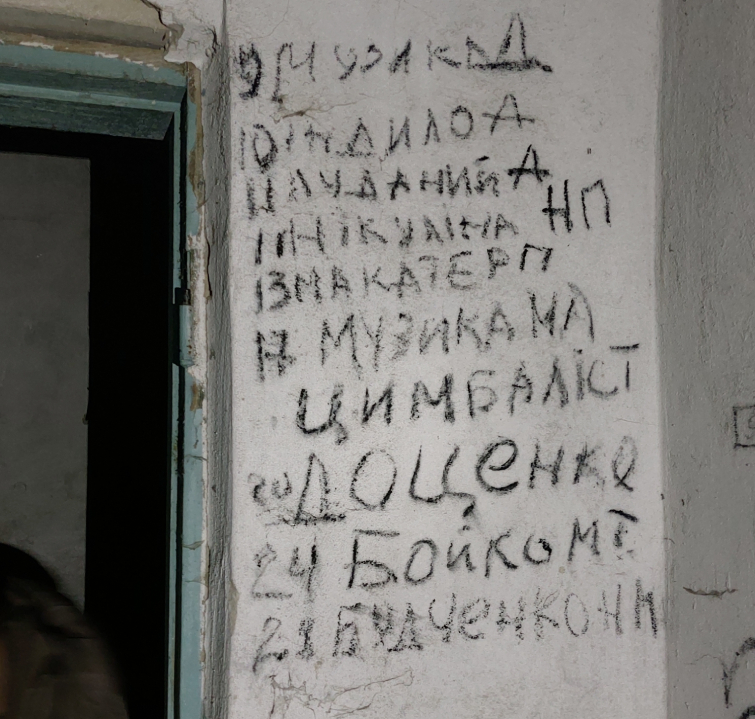 9 МУЗИКА Д
10 ШИЛО А
11 ЛУДАНИЙ А
НІКУЛІНА НП
13 МАКАТЕР П
17 МУЗИКА МА
ЦИМБАЛІСТ
20 ДОЦЕНКО
24 БОЙКО МТ
28 БУДЧЕНКО НМ